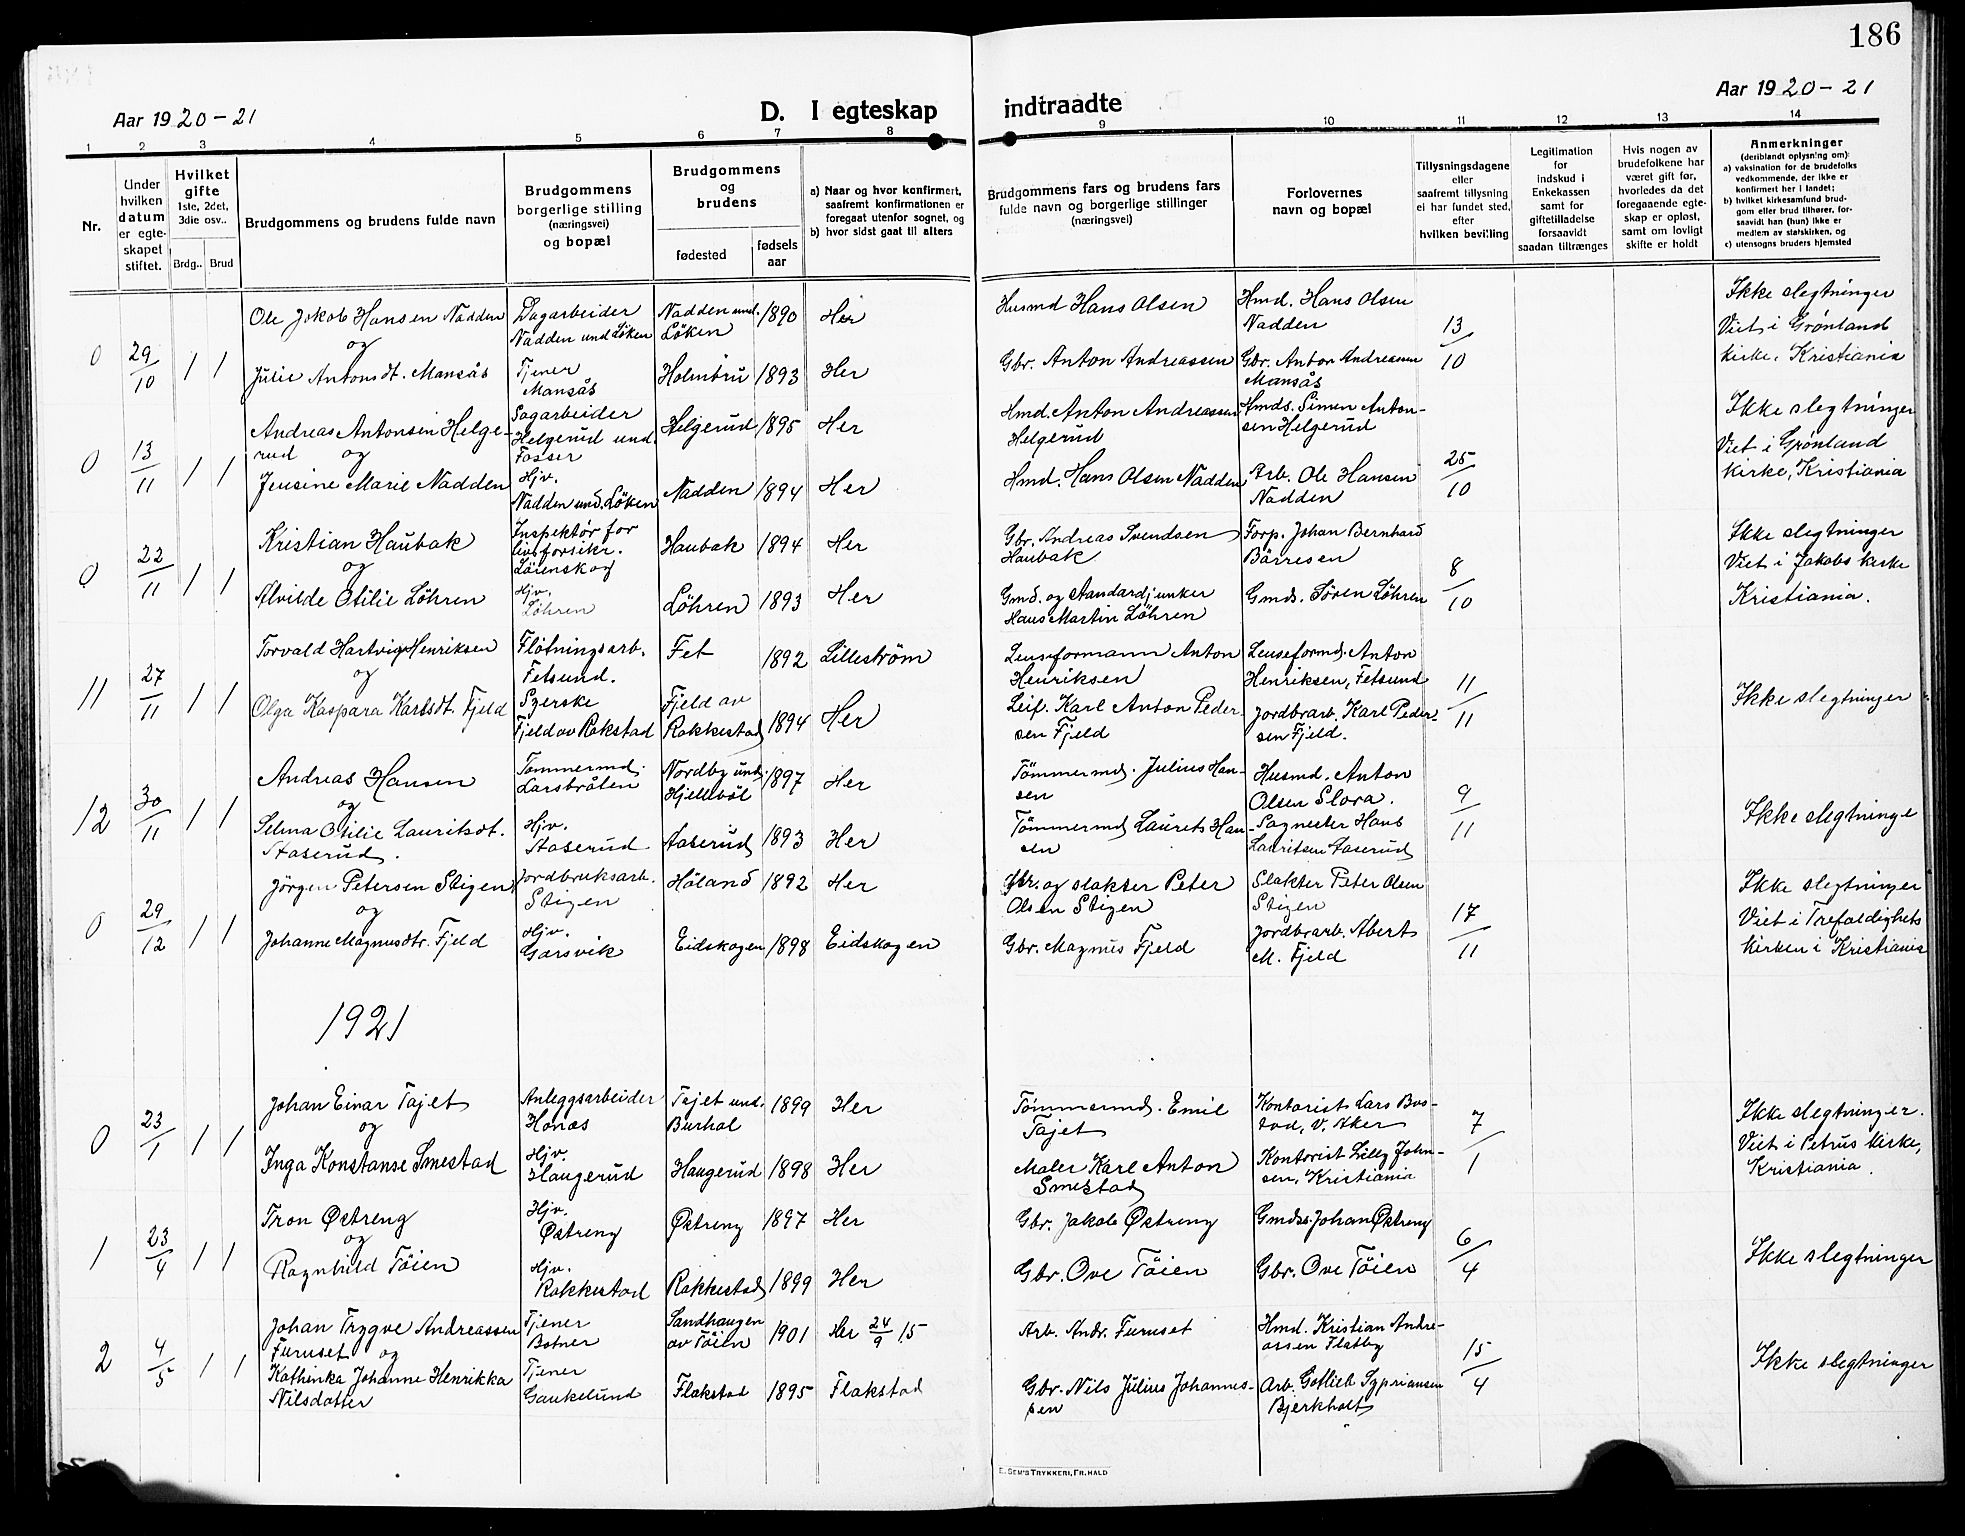 186
Aar 1920-21
D. I egteskap
indtraadte
Aar 1920-21
1 2 3 4 5 6 7 8 9 10 11 12 13 14
Nr.
Under hvilken datum er egteskapet stiftet.
Hvilket gifte 1ste, 2det, 3die osv..
Brdg.. Brud
Brudgommens og brudens fulde navn
Brudgommens borgerlige stilling (næringsvei) og bopæl
Brudgommens og brudens
fødested
fødsels aar
a) Naar og hvor konfirmert, saafremt konfirmationen er foregaat utenfor sognet, og
b) hvor sidst gaat til alters
Brudgommens fars og brudens fars fulde navn og borgerlige stillinger (næringsvei)
Forlovernes navn og bopæl
Tillysningsdagene eller saafremt tillysning ei har fundet sted, efter hvilken bevilling
Legitimation for indskud i Enkekassen samt for giftetilladelse forsaavidt saadan tiltrænges
Hvis nogen av brudefolkene har været gift før, hvorledes da det foregaaende egteskap er opløst, samt om lovligt skifte er holdt
Anmerkninger (deriblandt oplysning om):
a) vaksination for de brudefolks vedkommende, der ikke er konfirmert her i landet;
b) hvilket kirkesamfund brudgom eller brud tilhører, forsaavidt han (hun) ikke er medlem av statskirken, og
c) utensogns bruders hjemsted
0 29/10 1 1
Ole Jokob Hansen Nadden
og
Julie Antonsdt. Mansås
Dagarbeider
Nadden und Löken
Tjener
Mansås
Nadden und. Löken 1890 Her
Holmtru 1893 Her
Husmd Hans Olsen
Gbr. Anton Andreassen
Hmd. Hans Olsen
Nadden
Gbr. Anton Andreassen
Mansås
13/10
Ikke slegtninger
Viet i Grønland
kirke, Kristiania
0 13/11 1 1
Andreas Antonsen Helge-
rud og
Jensine Marie Nadden
Sagarbeider
Helgerud und.
Fosser
Hjv.
Nadden und. Löken
Helgerud 1895 Her
Nadden 1894 Her
Hmd. Anton Andreassen
Helgerud
Hmd. Hans Olsen Nadden
Hmds. Simen Anton-
sen Helgerud
Arb. Ole Hansen
Nadden
25/10
Ikke slegtninger
Viet i Grønland
kirke, Kristiania
0 22/11 1 1
Kristian Haubak
og
Alvilde Otilie Löhren
Inspektør for
livsforsikr.
Löienskog
Hjv.
Löhren
Haubak 1894 Her
Löhren 1893 Her
Gbr. Andreas Svendsen
Haubak
Gmd. og Standardjunker
Hans Martin Löhren
Forp. Johan Bernhard
Bärresen
Gmds. Sören Löhren
8/10
Ikke slegtninger
Viet i Jakobs kirke
Kristiania.
11 27/11 1 1
Torvald Hartvig Henriksen
og
Olga Kaspara Karlsdt. Fjeld
Fløtningsarb.
Fetsund.
Syerske
Fjeld av Rakstad
Fet 1892 Lilleström
Fjeld av
Rakkestad 1894 Her
Lenseformann Anton
Henriksen
Leif. Karl Anton Peder-
sen Fjeld
Lenseformd. Anton
Henriksen, Fetsund
Jordbrarb. Karl Peder-
sen Fjeld.
11/11
Ikke slegtninger
12 30/11 1 1
Andreas Hansen
og
Selma Otilie Lauritsdt.
Staserud.
Tømmermd.
Larsbråten
Hjv.
Staserud
Nordby und.
Hjellebøl 1897 Her
Aaserud 1893 Her
Tömmermd. Julius Han-
sen
Tömmermd. Laurits Han-
sen
Husmd. Anton
Olsen Slora.
Sagmester Hans
Lauritsen Aaserud
9/11
Ikke slegtninge
0 29/12 1 1
Jörgen Petersen Stigen
og
Johanne Magnusdtr. Fjeld
Jordbruksarb.
Stigen
Hjv.
Garsvik
Höland 1892 Her
Eidskogen 1898 Eidskogen
Gbr. og slakter Peter
Olsen Stigen
Gbr. Magnus Fjeld
Slakter Peter Olsen
Stigen
Jordbrarb. Abert
M. Fjeld
17/11
Ikke slegtninger
Viet i Trefoldighets
kirken i Kristiania
1921
0 23/1 1 1
Johan Einar Tajet
og
Inga Konstanse Smestad
Anleggsarbeider
Honas
Hjv.
Haugerud
Tajet und.
Burhol 1899 Her
Haugerud 1898 Her
Tømmermd. Emil
Tajet
Maler Karl Anton
Smestad
Kontorist Lars Bus-
tad, V. Aker
Kontorist Lilly John-
sen, Kristiania
7/1
Ikke slegtninger.
Viet i Petrus kirke,
Kristiania.
1 23/4 1 1
Tron Østreng
og
Ragnhild Töien
Hjv.
Østreng
Hjv.
Rakkestad
Østreng 1897 Her
Rakkestad 1899 Her
Gbr. Jakob Østreng
Gbr. Ove Töien
Gmds. Johan Østreng
Gbr. Ove Töien
6/4
Ikke slegtninger
2 4/5 1 1
Johan Trygve Andreassen
Furuset og
Kathinka Johanne Henrikka
Nilsdatter
Tjener
Botner
Tjener
Gaukelund
Sandhaugen
av Töien 1901 Her 24/9 15
Flakstad 1895 Flakstad
Arb. Andr. Furuset
Gbr. Nils Julius Johannes-
sen
Hmd. Kristian Andre-
assen Flatby
Arb. Gotlieb Sypriansen
Bjerkholt
15/4
Ikke slegtninger
E. SEM'S TRYKKERI, FR.HALD